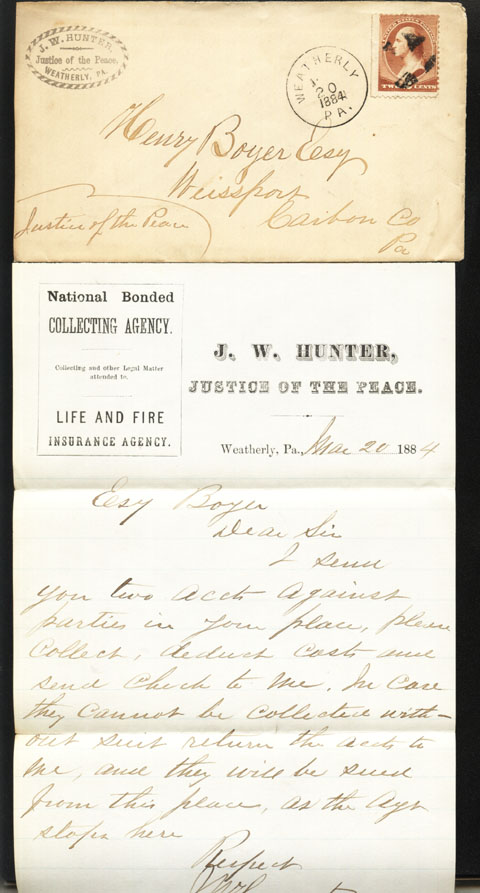 J. W. HUNTER,
Justice of the Peace,
WEATHERLY, PA.
WEATHERLY
20
1884
PA.
TWO CENTS
Henry Boyer Esq
Weissport
Carbon Co
Pa
Justice of the Peace
National Bonded
COLLECTING AGENCY.
Collecting and other Legal Matter
attended to.
LIFE AND FIRE
INSURANCE AGENCY.
J. W. HUNTER,
JUSTICE OF THE PEACE.
Weatherly, Pa., Mar 20 1884
Esq Boyer
Dear Sir
I send
you two accts against
parties in your place, please
Collect, deduct costs and
send check to me. In Case
they cannot be collected with-
out suit return the accts to
me, and they will be sued
from this place, as the Agt
stops here
Respect